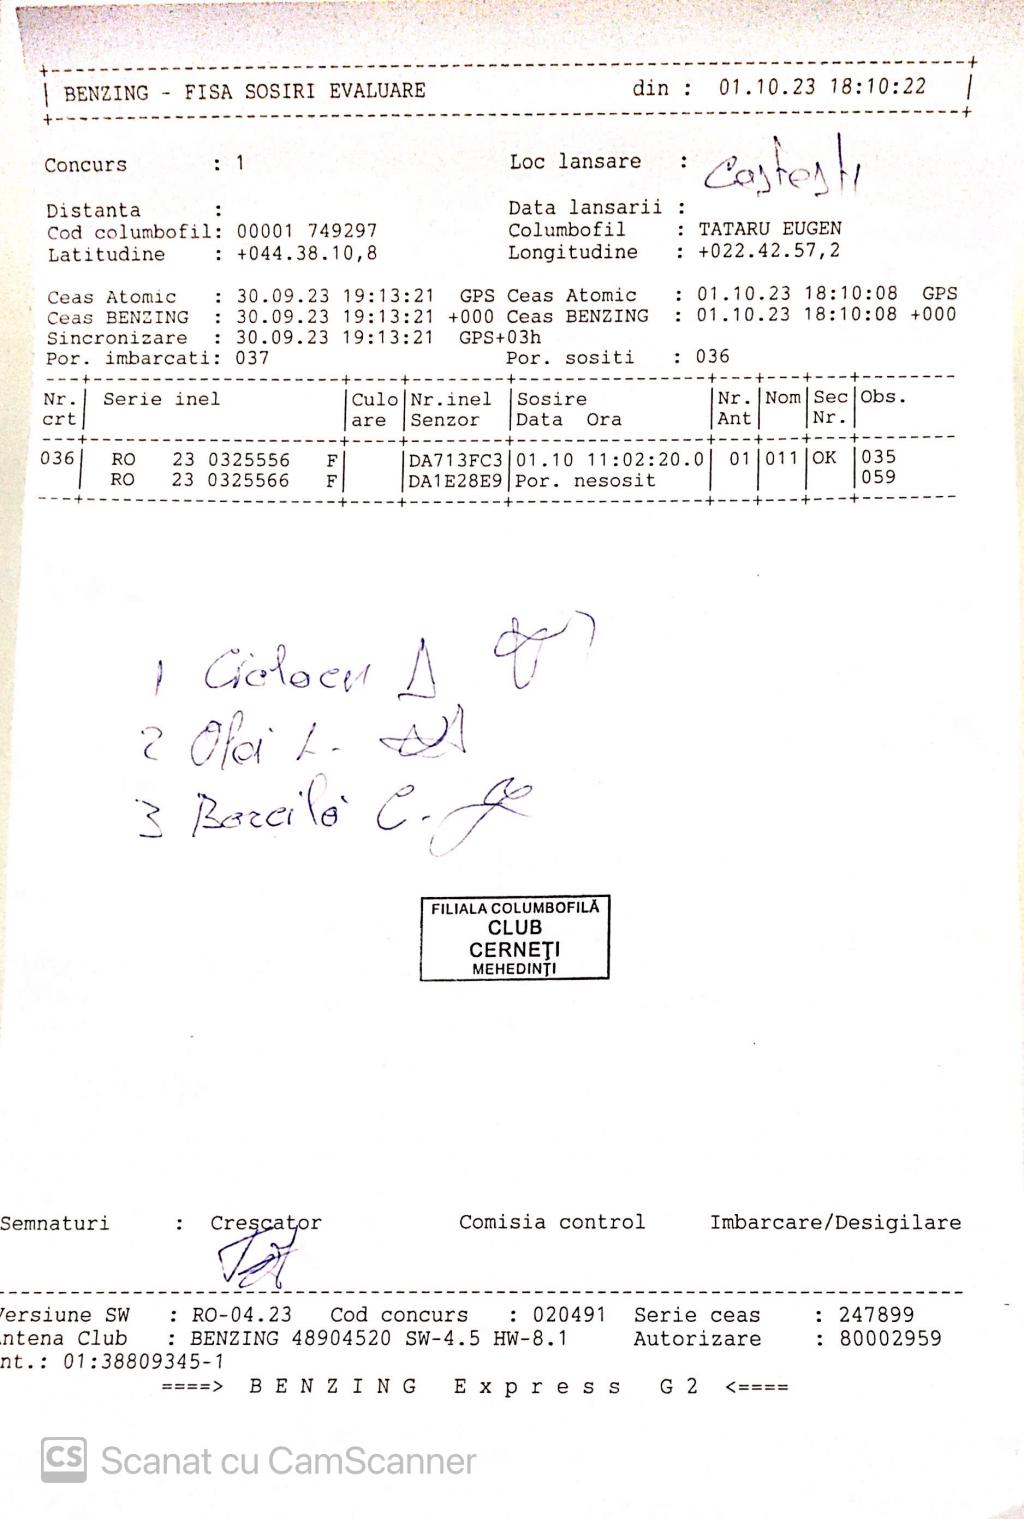 BENZING - FISA SOSIRI EVALUARE din : 01.10.23 18:10:22
Concurs : 1 Loc lansare : Costesti
Distanta : Data lansarii :
Cod columbofil: 00001 749297 Columbofil : TATARU EUGEN
Latitudine : +044.38.10,8 Longitudine : +022.42.57,2
Ceas Atomic : 30.09.23 19:13:21 GPS Ceas Atomic : 01.10.23 18:10:08 GPS
Ceas BENZING : 30.09.23 19:13:21 +000 Ceas BENZING : 01.10.23 18:10:08 +000
Sincronizare : 30.09.23 19:13:21 GPS+03h
Por. imbarcati: 037 Por. sositi : 036
Nr. Serie inel Culo Nr.inel Sosire Nr. Nom Sec Obs.
crt are Senzor Data Ora Ant Nr.
036 RO 23 0325556 F DA713FC3 01.10 11:02:20.0 01 011 OK 035
RO 23 0325566 F DA1E28E9 Por. nesosit 059
1
2
3 C.
FILIALA COLUMBOFILĂ
CLUB
CERNEȚI
MEHEDINȚI
Semnaturi : Crescator Comisia control Imbarcare/Desigilare
Versiune SW : RO-04.23 Cod concurs : 020491 Serie ceas : 247899
ntena Club : BENZING 48904520 SW-4.5 HW-8.1 Autorizare : 80002959
nt.: 01:38809345-1
====> B E N Z I N G E x p r e s s G 2 <====
CS Scanat cu CamScanner